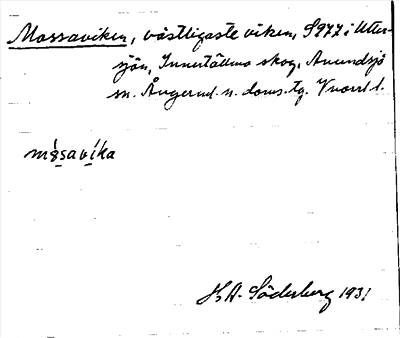 Mossaviken, västligaste viken, S977 i Utter-
sjön, Innertällmo skog, Anundsjö
sn. Ångerml. n. doms. tg. Vnorrl l.
mòsavika
H. A. Söderberg 1931